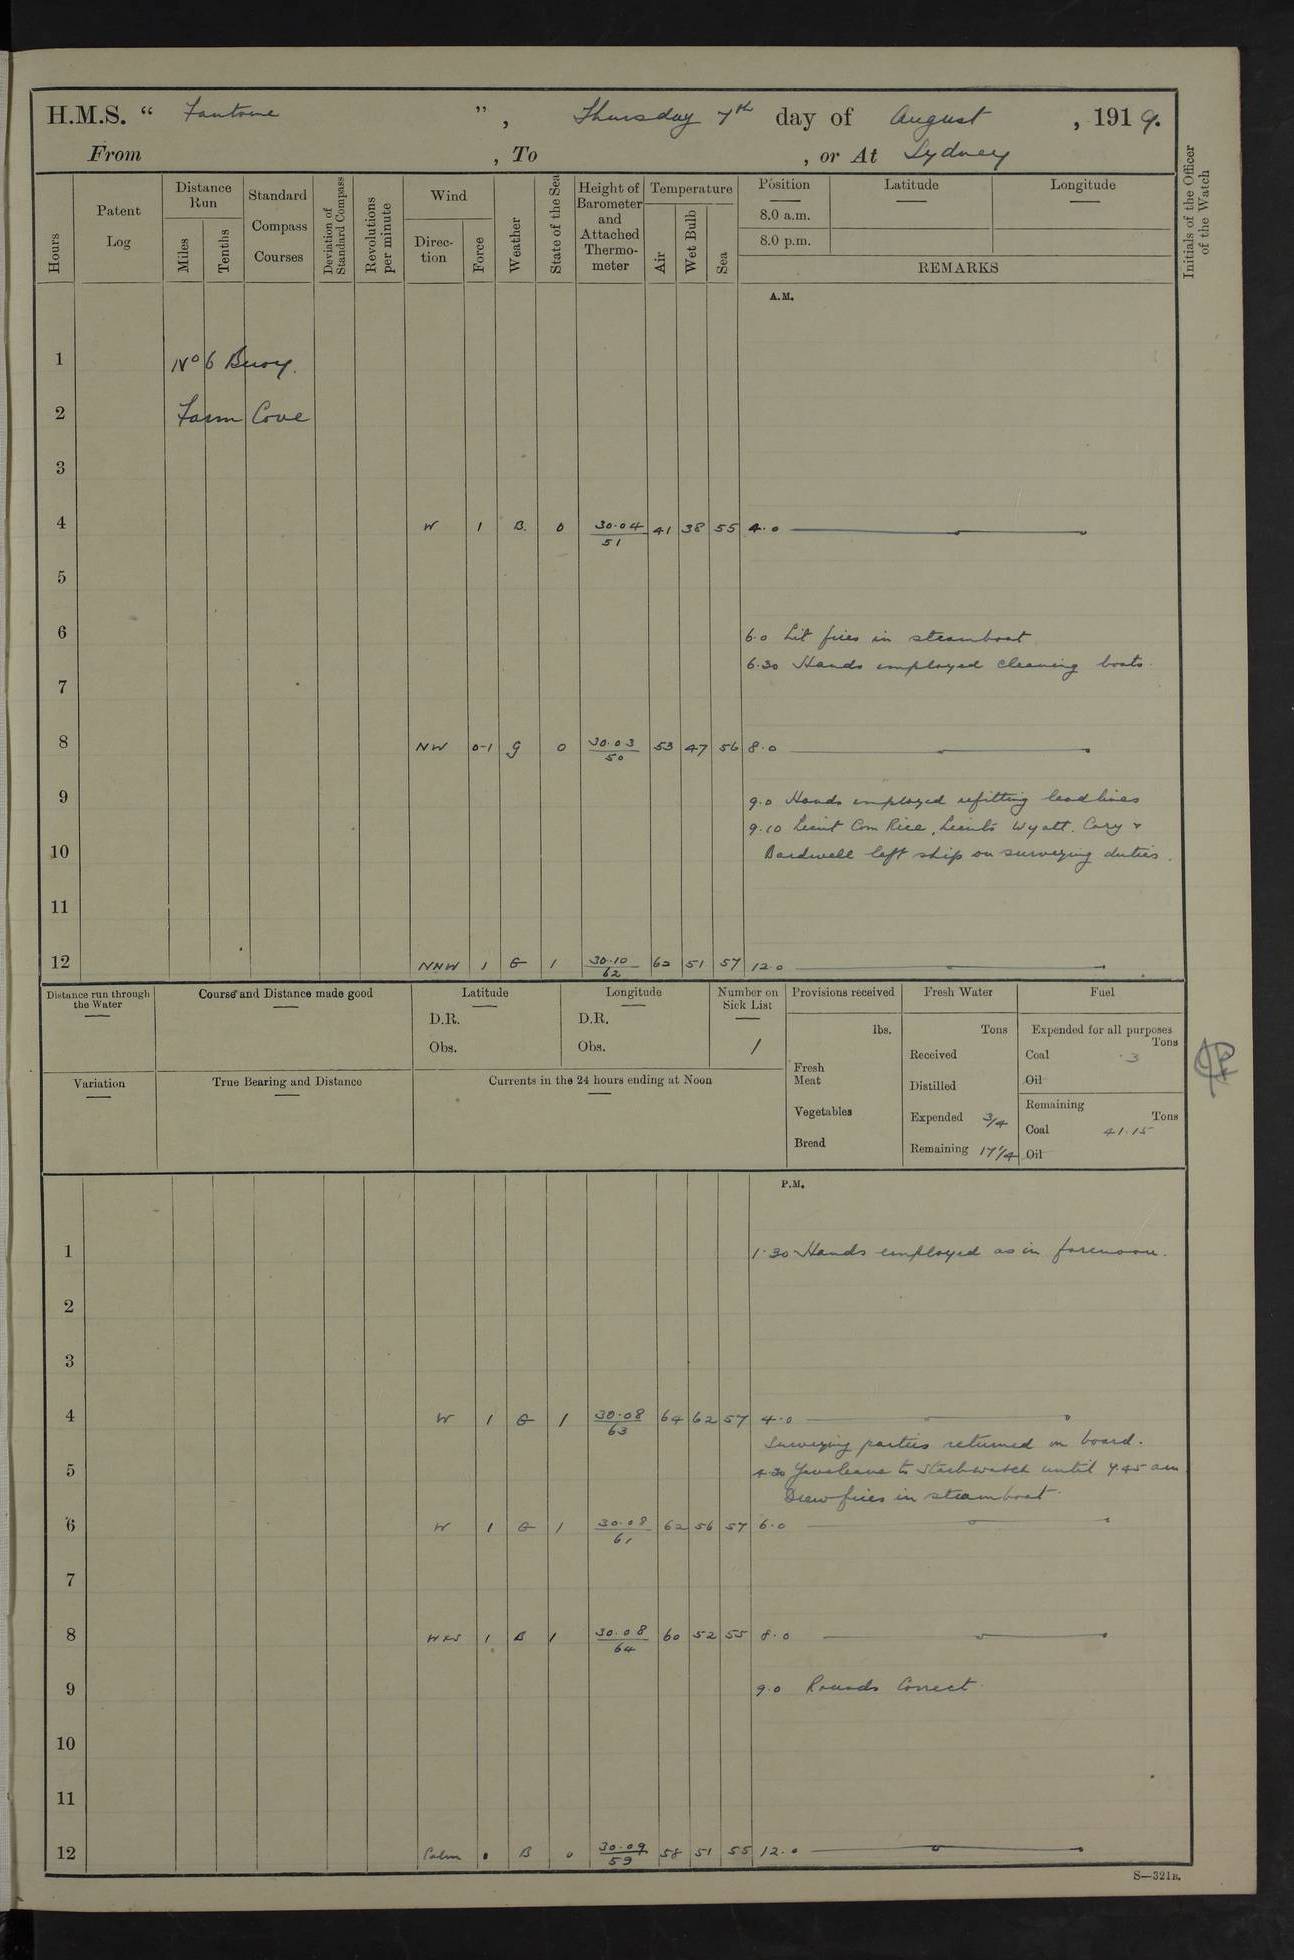 H.M.S. “ Fantome ”, Thursday 7th day of August, 1919.
From , To , or At Sydney
Hours
Patent Log
Distance Run
Miles
Tenths
Standard Compass Courses
Deviation of Standard Compass
Revolutions per minute
Wind
Direction
Force
Weather
State of the Sea
Height of Barometer and Attached Thermometer
Temperature
Air
Wet Bulb
Sea
Position
8.0 a.m.
8.0 p.m.
Latitude
Longitude
REMARKS
Initials of the Officer of the Watch
A.M.
1 No 6 Buoy.
2 Farm Cove
3
4 W 1 B. 0 30.04 51 41 38 55 4.0
5
6 6.0 Lit fires in steamboat
6.30 Hands employed cleaning boats.
7
8 NW 0-1 g 0 30.03 50 53 47 56 8.0
9 9.0 Hands employed refitting leadlines
9.10 Lieut Com Rice, Lieuts Wyatt. Cary &
10 Bardwell left ship on surveying duties.
11
12 NNW 1 G 1 30.10 62 62 51 57 12.0
Distance run through the Water
Course and Distance made good
Latitude
D.R.
Obs.
Longitude
D.R.
Obs.
Number on Sick List
1
Provisions received
lbs.
Fresh Meat
Vegetables
Bread
Fresh Water
Tons
Received
Distilled
Expended 3/4
Remaining 17 1/4
Fuel
Expended for all purposes
Tons
Coal .3
Oil
Remaining
Tons
Coal 41.15
Oil
Variation
True Bearing and Distance
Currents in the 24 hours ending at Noon
P.M.
1 1.30 Hands employed as in forenoon.
2
3
4 W 1 G 1 30.08 63 64 62 57 4.0
Surveying parties returned on board.
5 4.30 Gave leave to Starbwatch until 7.45 am
Drew fires in steamboat.
6 W 1 G 1 30.08 61 62 56 57 6.0
7
8 1 B 1 30.08 64 60 52 55 8.0
9 9.0 Rounds Correct.
10
11
12 Calm 0 B 0 30.09 59 58 51 55 12.0
S—321B.